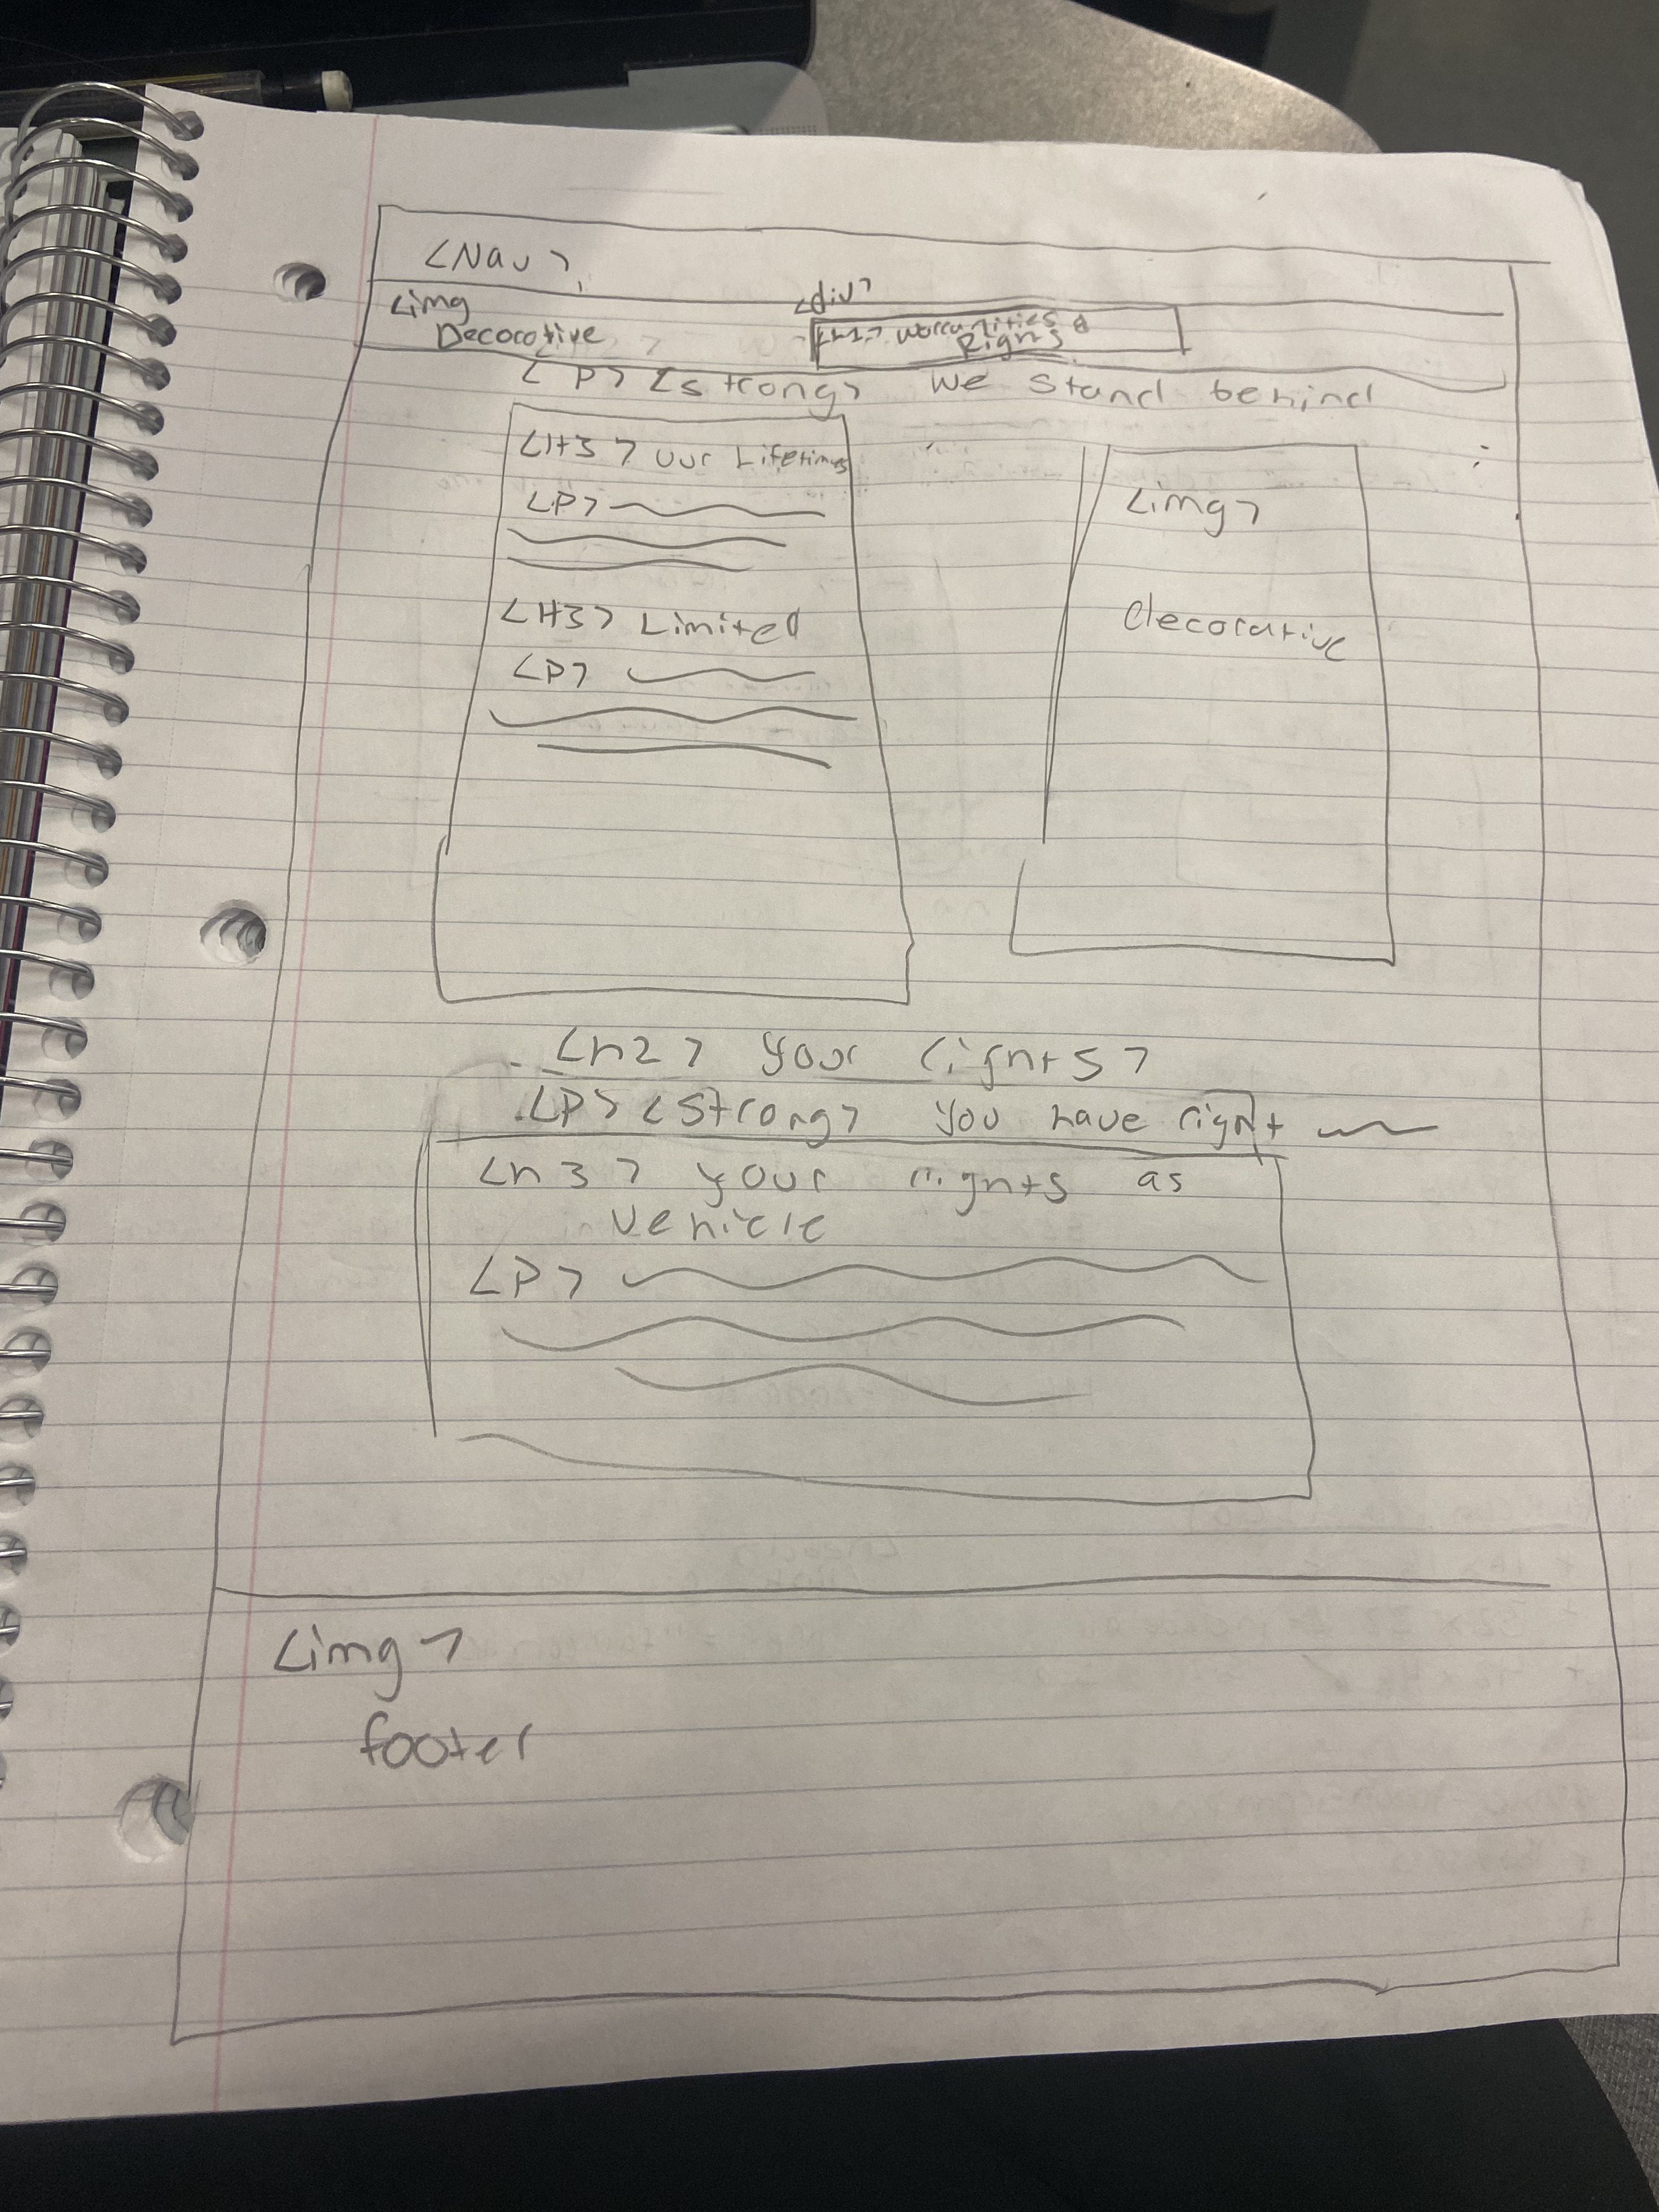 <Nav>
<img
Decorative
<div>
<h1> Warranties &
Rights
<P> <strong> We Stand behind
<H3> Our Lifetimes
<P>
<H3> Limited
<P>
<img>
decorative
<h2> Your rights>
<P> <Strong> You have right
<h3> your rights as
vehicle
<P>
<img>
footer